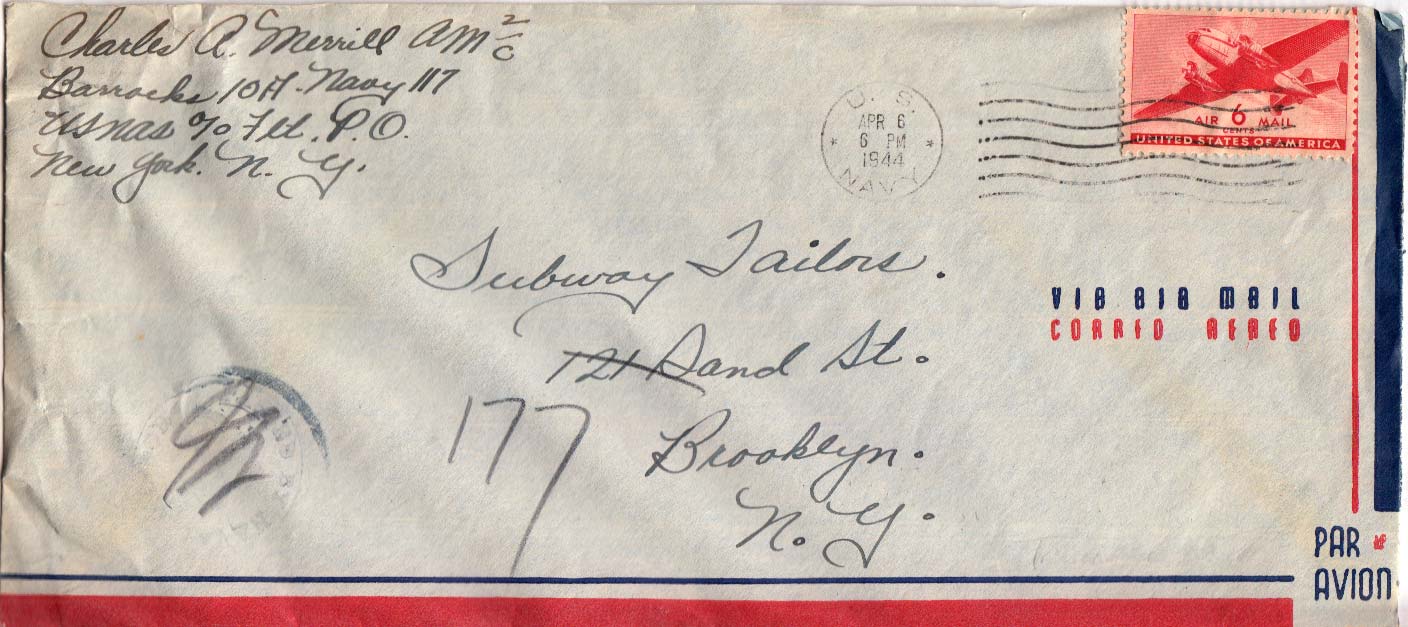 Charles A. Merrill AM 2/c
Barracks 10A - Navy 117
USNAS c/o Flt. P.O.
New York. N. Y.
U. S.
APR 6
6 PM
1944
NAVY
AIR 6 MAIL
CENTS
UNITED STATES OF AMERICA
Subway Tailors.
121 Sand St.
177
Brooklyn.
N. Y.
VIA AIR MAIL
CORREO AEREO
PAR
AVION